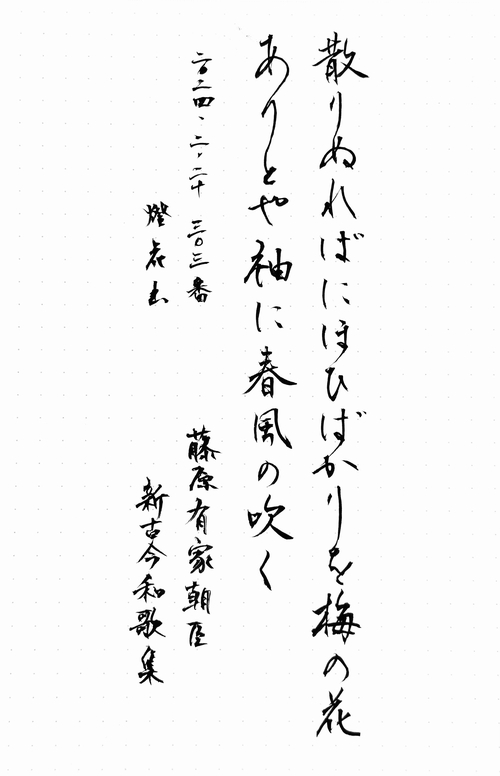 散りぬればにほひばかりを梅の花
ありとや袖に春風の吹く
二〇二四、二、二十 三〇三番
藤原有家朝臣
新古今和歌集